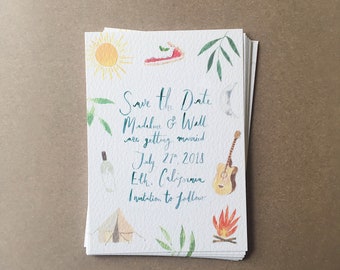 Save the Date
Madeline & Will
are getting married
July 27th, 2018
Elk, California
Invitation to follow